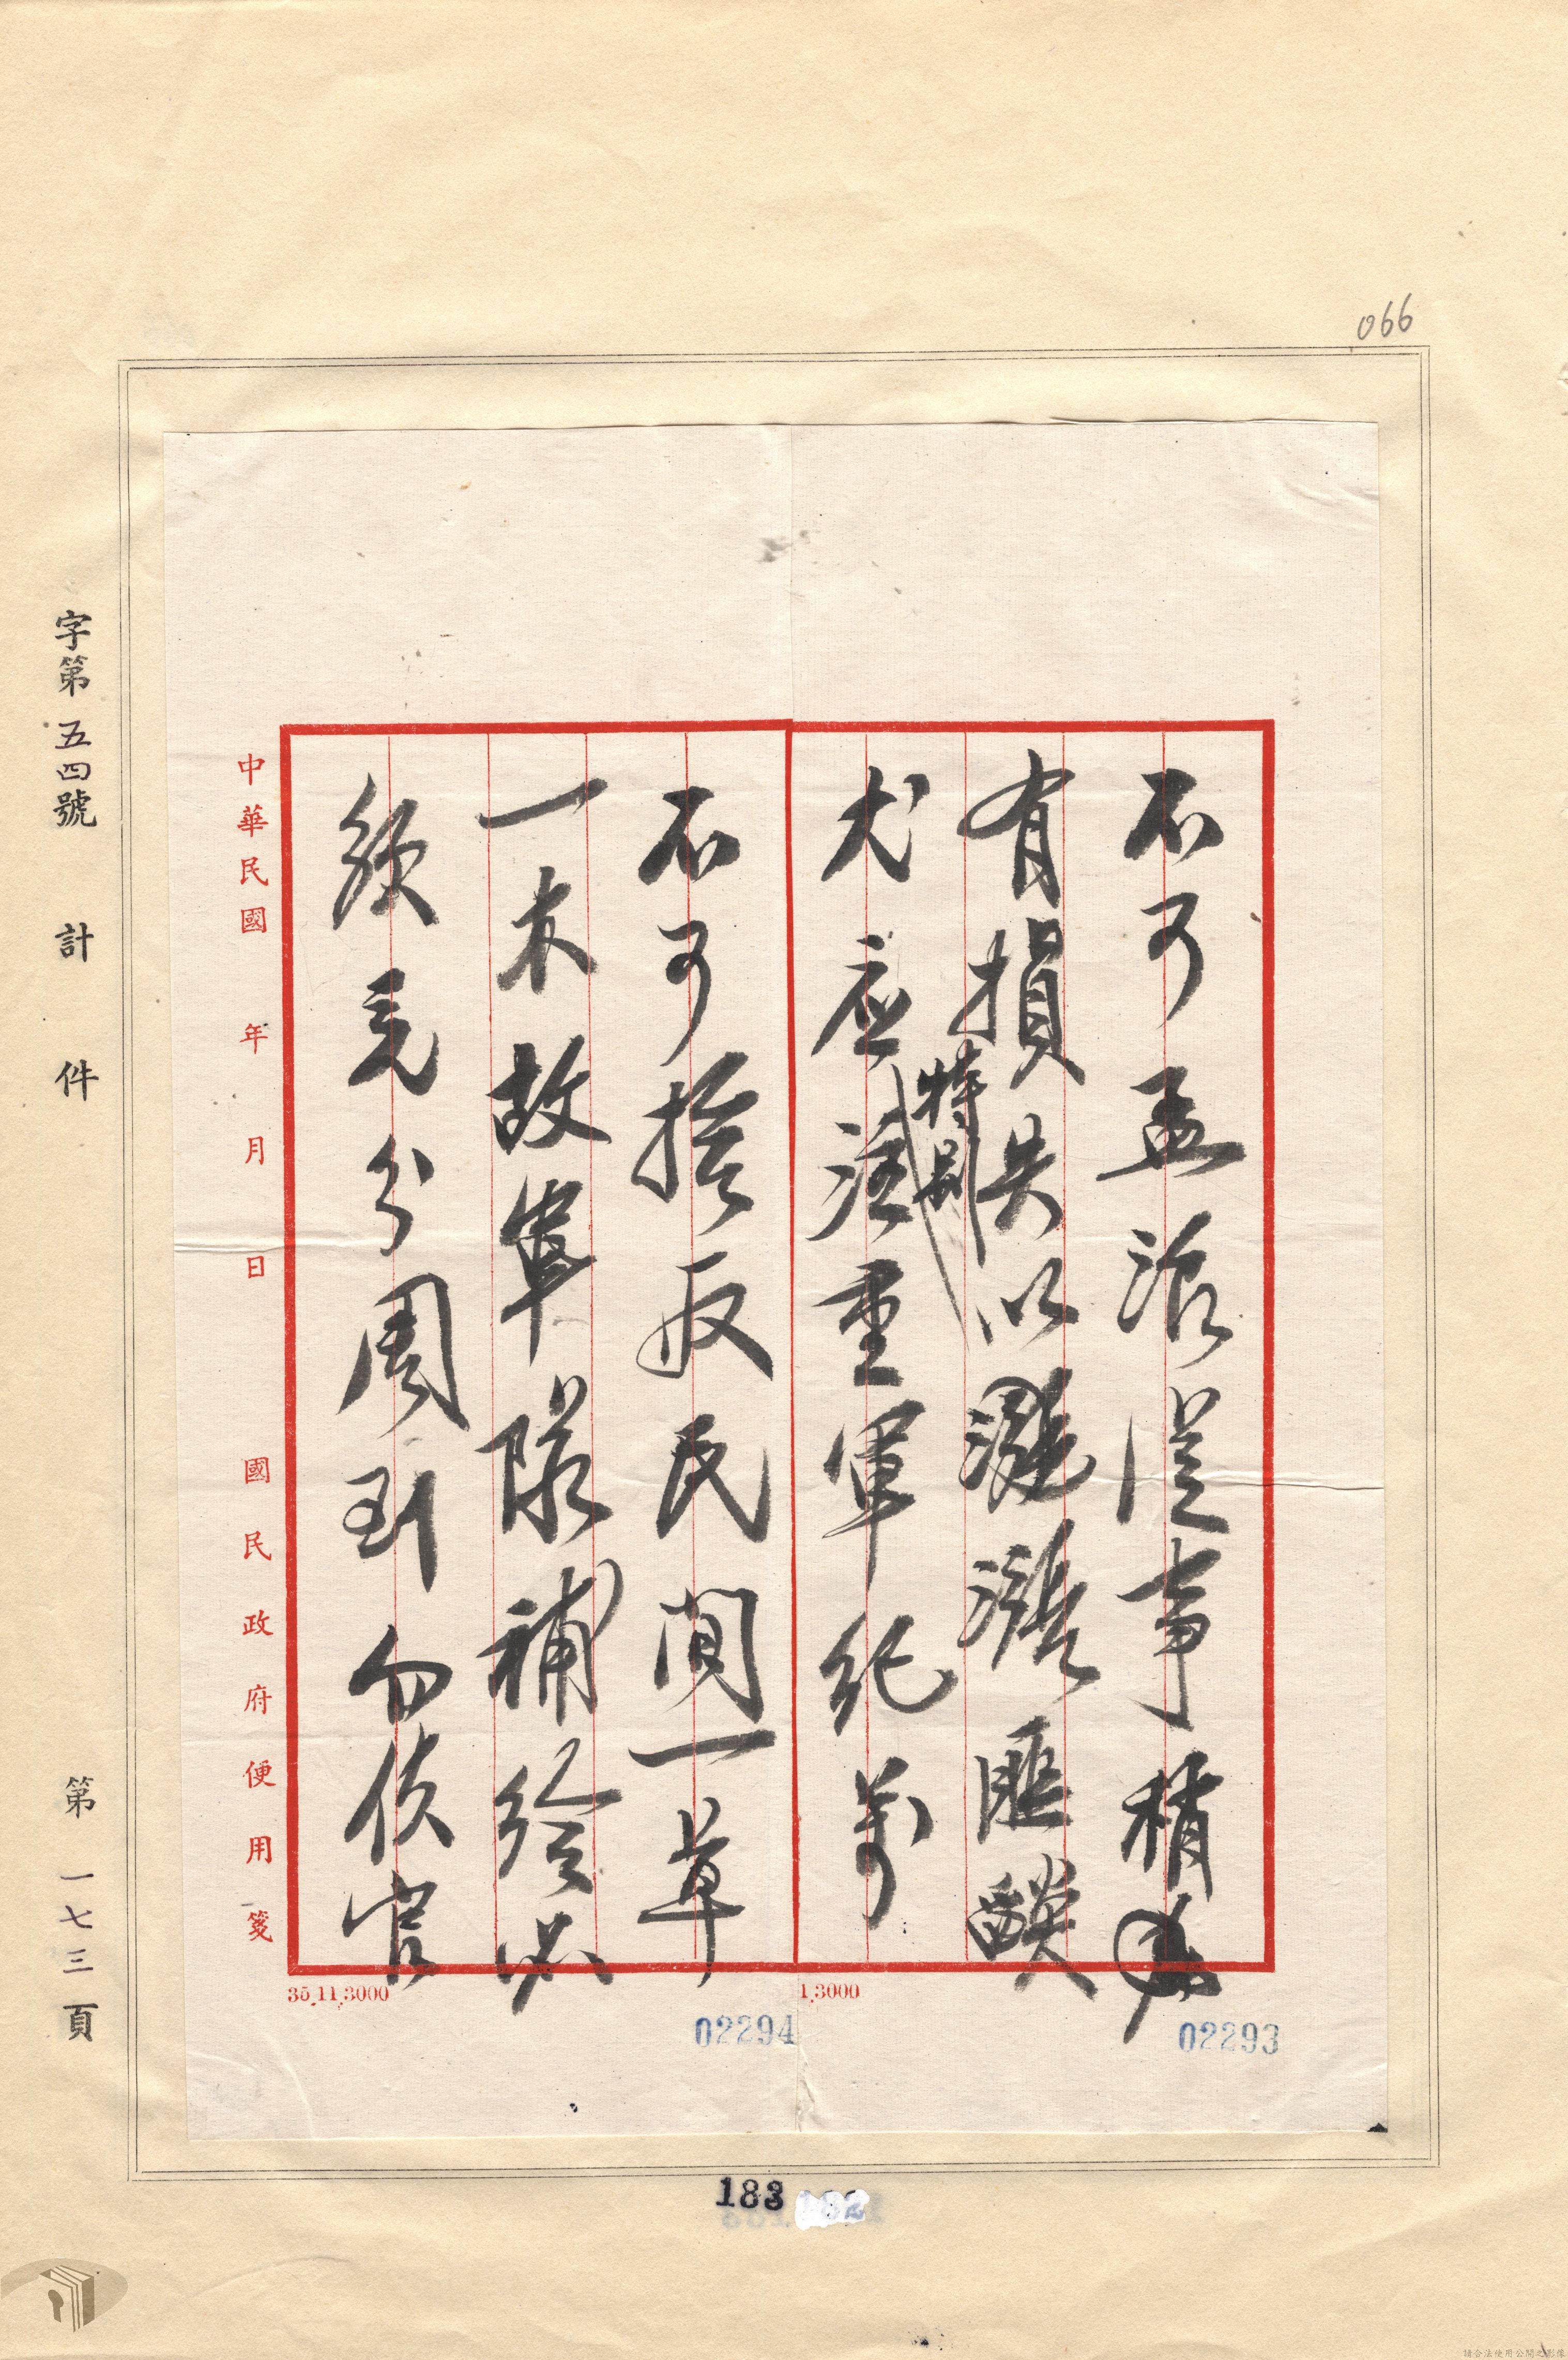 066
不可孟浪從事稍
有損失以漲匪燄
尤應特別注重軍紀萬
不可拾取民間一草
一木故軍隊補給必
須充分周到勿使官
中華民國 年 月 日 國民政府便用箋
字第五四號 計 件 第一七三頁
35.11.3000
1.3000
02294
02293
183
請合法使用公開之影像